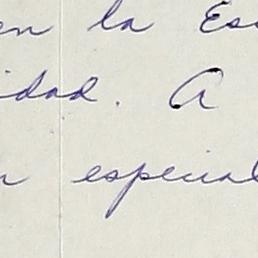 en la Es
idad. A
n especial